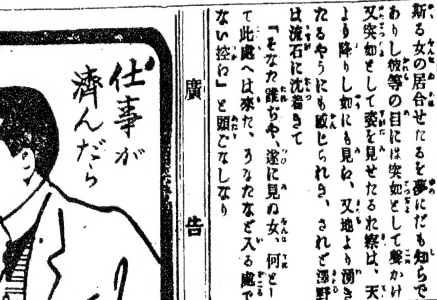 斯る女の居合せたるを夢にだも知らで
ありし彼等の目には突如として聲かけ
又突如として姿を見せたるお察は、天
より降りし如にも見ね、又地より湧き
たるやうにも感じられき、されど澤野
は流石に沈着きて
『そなた誰ぢや、遂に見ぬ女、何とし
て此處へは來た、うなたなど入る處で
ない控ね』と頭ごなしなり
廣告
仕事が
濟んだら